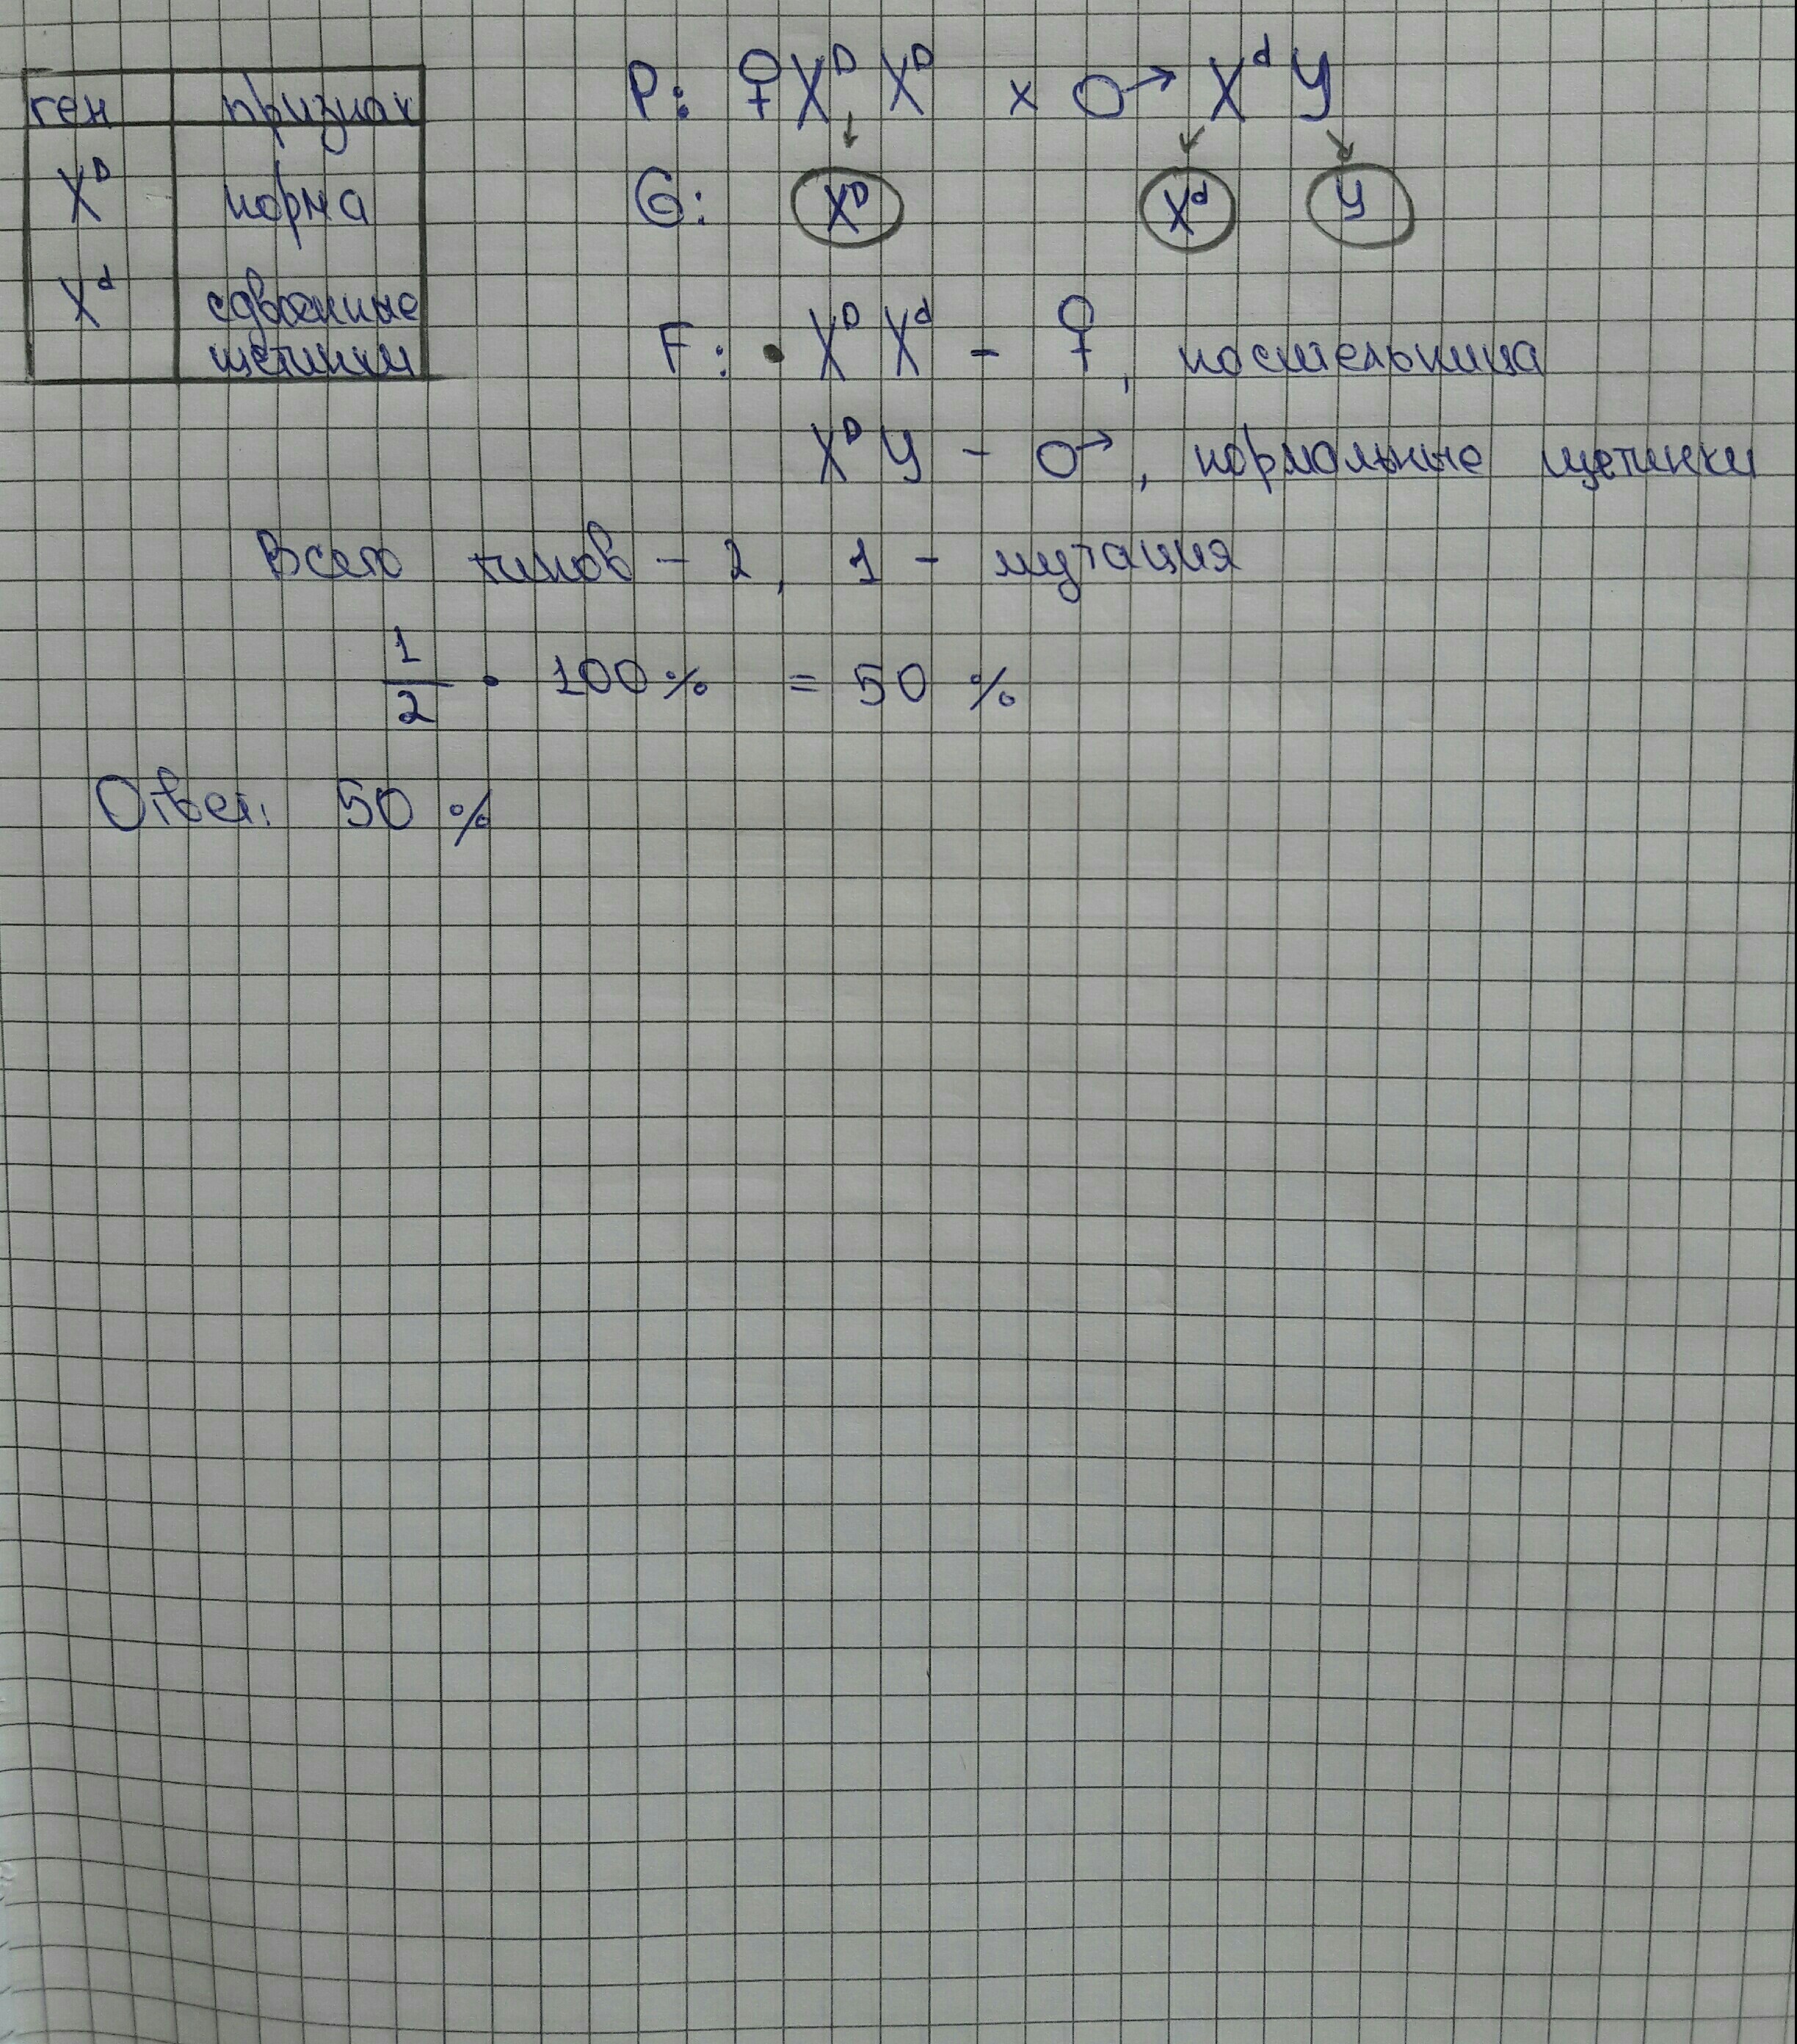 ген признак
X^D норма
X^d сдвоенные
щетинки
P: ♀ X^D X^D x ♂ X^d У
G: X^D X^d У
F: • X^D X^d - ♀, носительница
X^D У - ♂, нормальные щетинки
Всего типов - 2, 1 - мутация
1/2 · 100% = 50 %
Ответ: 50 %